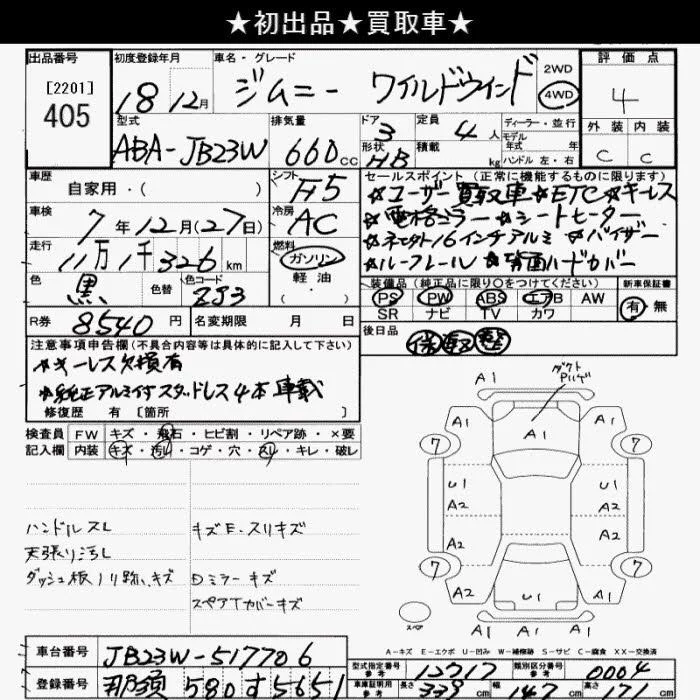 ★初出品★買取車★
出品番号
[2201]
405
初度登録年月
18 12月
車名・グレード
ジムニー ワイルドウインド
2WD
4WD
評価点
4
外装 内装
C C
型式
ABA-JB23W
排気量
660cc
ドア
3
形状
HB
定員
4人
積載
kg
ディーラー・並行
モデル
年式 年
ハンドル 左・右
車歴
自家用・( )
シフト
F5
車検
7年12月(27日)
冷房
AC
走行
11万1千326km
燃料
ガソリン
軽油
( ・ )
色
黒
色替
色コード
ZJ3
R券
8540円
名変期限 月 日
セールスポイント (正常に機能するものに限ります)
☆ユーザー買取車 ☆ETC ☆キーレス
☆電格ミラー ☆シートヒーター
☆社外16インチアルミ ☆バイザー
☆ルーフレール ☆背面ハードカバー
装備品 (純正品に限り○をつけてください)
PS PW ABS エアB AW
SR ナビ TV カワ
新車保証書
有 無
後日品
保 取 整
注意事項申告欄 (不具合内容等は具体的に記入して下さい)
☆キーレス欠損有
☆純正アルミ付スタッドレス4本車載
修復歴 有 [箇所
検査員
記入欄
FW キズ・飛石・ヒビ割・リペア跡・×要
内装 キズ・汚レ・コゲ・穴・スレ・キレ・破レ
ハンドルスレ
天張り汚レ
ダッシュ板ノリ跡、キズ
キズE・スリキズ
Dミラーキズ
スペアTカバーキズ
A1
ダクト
A1
A1
A1
7
7
U1
A2
U1
A2
A2
A2
7
7
A1
U1
A1
スペア
A1 A1 A1
A-キズ E-エクボ U-凹み W-補修跡 S-サビ C-腐食 XX-交換済
車台番号
JB23W-517706
登録番号
那須 580 す 5651
型式指定番号
参考
12717
類別区分番号
参考
0004
車庫証明用
参考
長さ
339cm
幅
147cm
高さ
cm